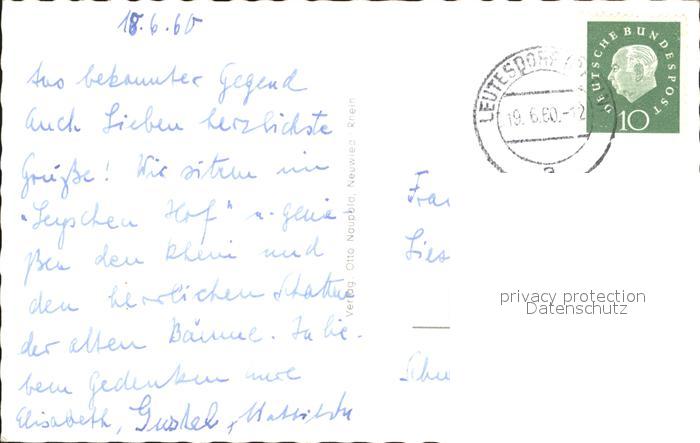 18.6.60
Aus bekannter Gegend
Euch Lieben herzlichste
Grüße! Wir sitzen im
"Leyschen Hof" u. genie-
ßen den Rhein und
den herrlichen Schatten
der alten Bäume. In lie-
bem Gedenken eure
Elisabeth, Gustel, Mathilde
Verlag Otto Naupold, Neuwied - Rhein
LEUTESDORF
19.6.60.-12
a
DEUTSCHE BUNDESPOST
10
Frau
Lies
privacy protection
Datenschutz